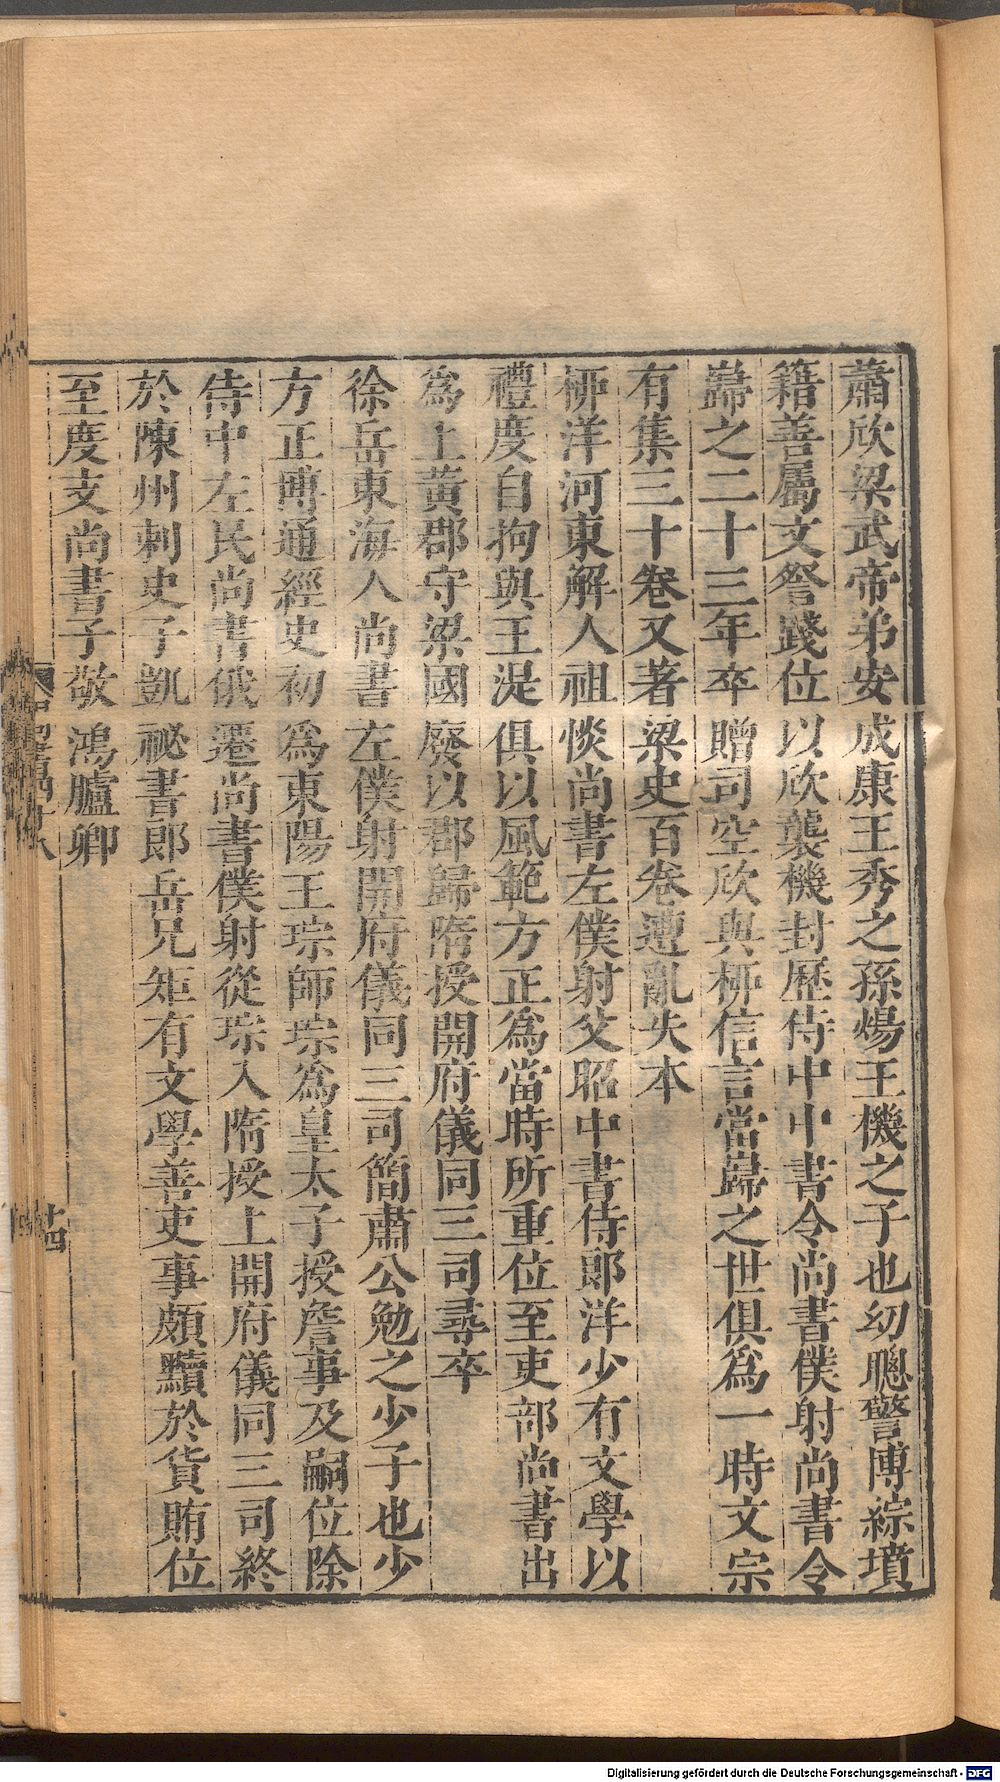 蕭欣梁武帝弟安成康王秀之孫煬王機之子也幼聰警博綜墳
籍善屬文詧踐位以欣襲機封歷侍中中書令尚書僕射尚書令
巋之二十三年卒贈司空欣與柳信言當巋之世俱爲一時文宗
有集三十卷又著梁史百卷遭亂失本
柳洋河東解人祖惔尚書左僕射父昭中書侍郎洋少有文學以
禮度自拘與王湜俱以風範方正爲當時所重位至吏部尚書出
爲上黃郡守梁國廢以郡歸隋授開府儀同三司尋卒
徐岳東海人尚書左僕射開府儀同三司簡肅公勉之少子也少
方正博通經史初爲東陽王琮師琮爲皇太子授詹事及嗣位除
侍中左民尚書俄遷尚書僕射從琮入隋授上開府儀同三司終
於陳州刺史子凱祕書郎岳兄矩有文學善吏事頗黷於貨賄位
至度支尚書子敬鴻臚卿
十四
Digitalisierung gefördert durch die Deutsche Forschungsgemeinschaft - DFG